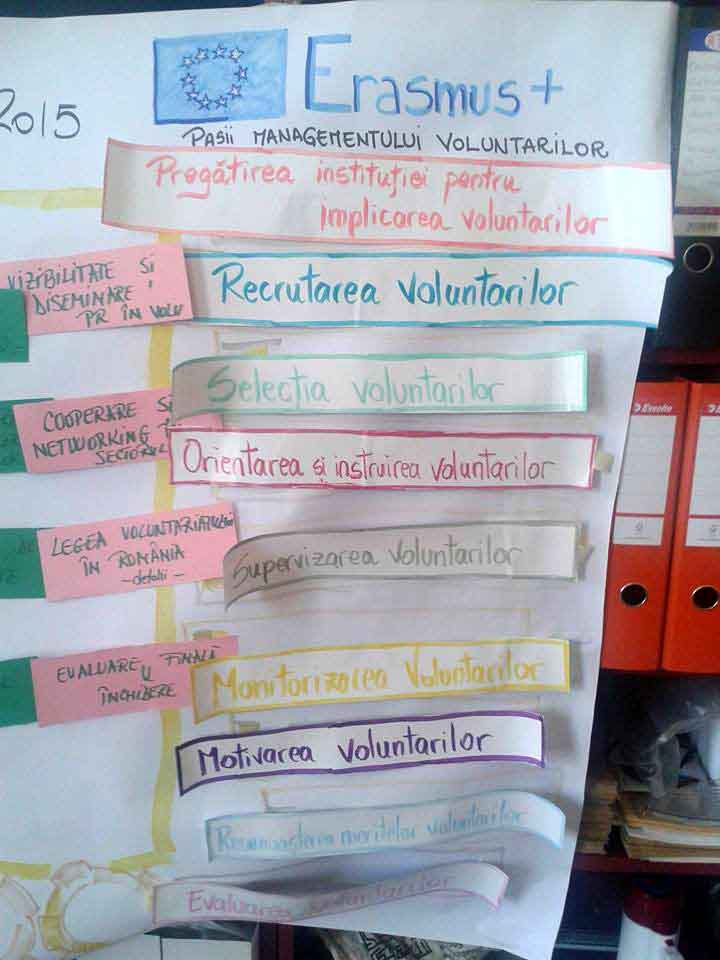 2015
Erasmus+
PAȘII MANAGEMENTULUI VOLUNTARILOR
Pregătirea instituției pentru
implicarea voluntarilor
VIZIBILITATE ȘI
DISEMINARE,
PR ÎN VOLU
Recrutarea voluntarilor
Selecția voluntarilor
COOPERARE ȘI
NETWORKING
SECTORUL
Orientarea și instruirea voluntarilor
LEGEA VOLUNTARIATULUI
ÎN ROMÂNIA
- detalii -
Supervizarea voluntarilor
EVALUARE FINALĂ
ÎNCHIDERE
Monitorizarea voluntarilor
Motivarea voluntarilor
Recunoașterea meritelor voluntarilor
Evaluarea voluntarilor
Esselte
Esselte